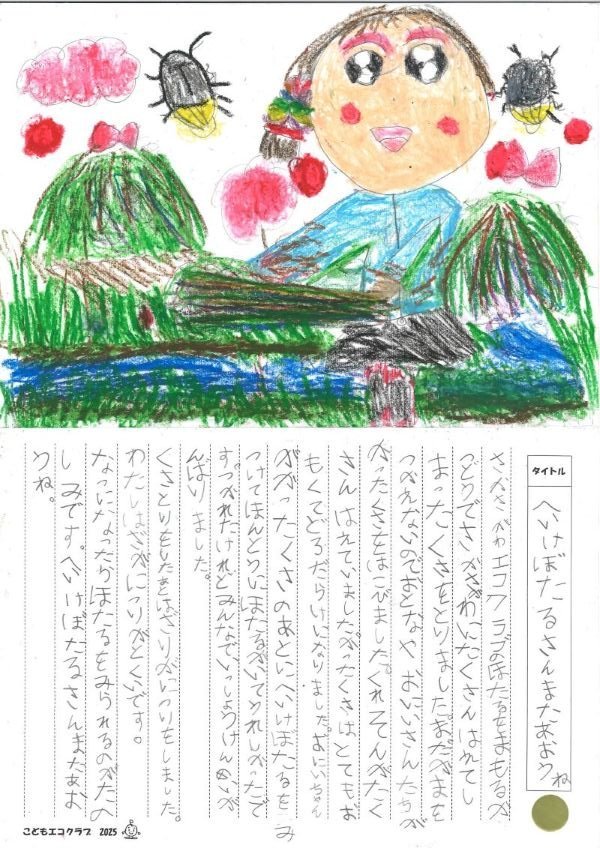 タイトル
へいけぼたるさんまたあおうね
さかさがわエコクラブのほたるをまもるか
つどうでさかさがわにたくさんはれてし
まったくさをとりました。
つかえないのでおとなやおにいさんたちが
かったくさをはこびました。くれそんがたく
さんはれていました。かたくさはとてもお
もくてどろだらけになりました。おにいちゃん
ががったくさのあとにへいけぼたるをみ
つけてほんとうにほたるがいてうれしかったで
す。つかれたけれどみんなでいっしょうけんめいが
んばりました。
くさとりをしたあとはざりがにつりをしました。
わたしはざりがにつりがとくいです。
なつになったらほたるをみられるのがたの
しみです。へいけぼたるさんまたあお
うね。
こどもエコクラブ 2025